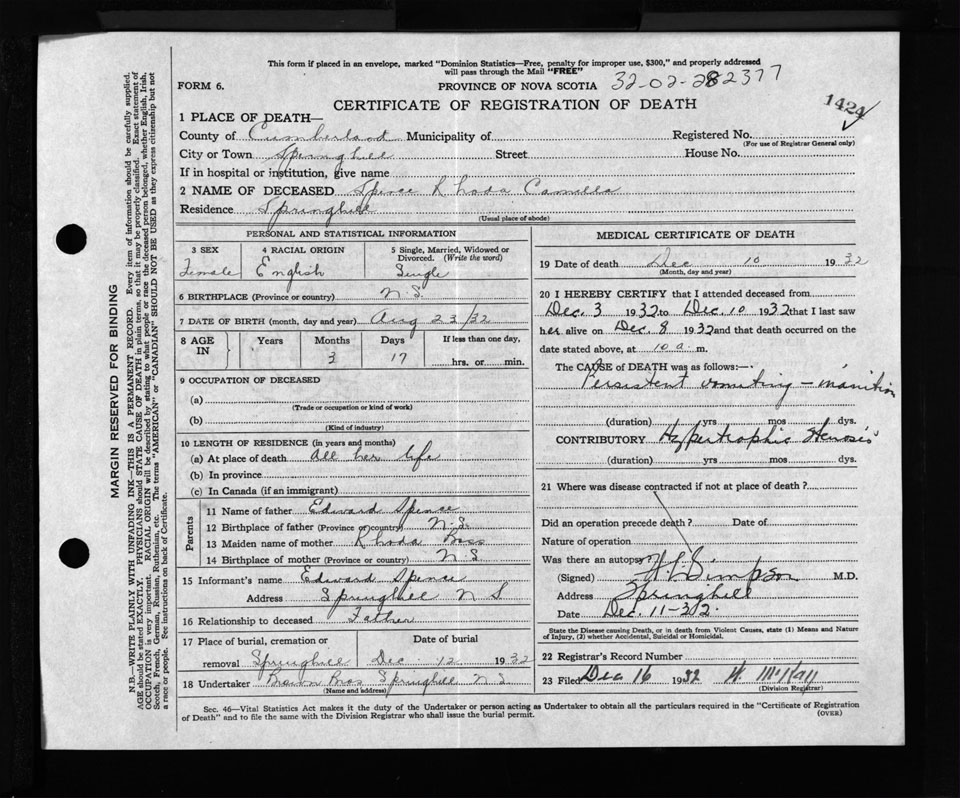 This form if placed in an envelope, marked "Dominion Statistics—Free, penalty for improper use, $300," and properly addressed
will pass through the Mail "FREE"
32-02-282377
FORM 6.
PROVINCE OF NOVA SCOTIA
CERTIFICATE OF REGISTRATION OF DEATH
1424
1 PLACE OF DEATH—
County of Cumberland Municipality of Registered No.
(For use of Registrar General only)
City or Town Springhill Street House No.
If in hospital or institution, give name
2 NAME OF DECEASED Spence Rhoda Camilla
Residence Springhill
(Usual place of abode)
PERSONAL AND STATISTICAL INFORMATION
3 SEX 4 RACIAL ORIGIN 5 Single, Married, Widowed or Divorced. (Write the word)
Female English Single
6 BIRTHPLACE (Province or country) N.S.
7 DATE OF BIRTH (month, day and year) Aug 23/32
8 AGE IN Years Months Days If less than one day,
3 17 hrs. or min.
9 OCCUPATION OF DECEASED
(a)
(Trade or occupation or kind of work)
(b)
(Kind of industry)
10 LENGTH OF RESIDENCE (in years and months)
(a) At place of death All her life
(b) In province
(c) In Canada (if an immigrant)
Parents
11 Name of father Edward Spence
12 Birthplace of father (Province or country) N.S.
13 Maiden name of mother Rhoda Ross
14 Birthplace of mother (Province or country) N.S
15 Informant's name Edward Spence
Address Springhill N S
16 Relationship to deceased Father
17 Place of burial, cremation or Date of burial
removal Springhill Dec 12 1932
18 Undertaker Brown Bros Springhill N S
(Name and address)
MEDICAL CERTIFICATE OF DEATH
19 Date of death Dec 10 1932
(Month, day and year)
20 I HEREBY CERTIFY that I attended deceased from
Dec. 3 1932 to Dec. 10 1932 that I last saw
her alive on Dec 8 1932 and that death occurred on the
date stated above, at 10 a. m.
The CAUSE of DEATH was as follows:—
Persistent vomiting — inanition
(duration) yrs mos dys.
CONTRIBUTORY Hypertrophic Stenosis
(duration) yrs mos dys.
21 Where was disease contracted if not at place of death?
Did an operation precede death? Date of
Nature of operation
Was there an autopsy?
(Signed) Simpson M.D.
Address Springhill
Date Dec. 11-32.
State the Disease causing Death, or in death from Violent Causes, state (1) Means and Nature
of Injury, (2) whether Accidental, Suicidal or Homicidal.
22 Registrar's Record Number
23 Filed Dec 16 1932
(Division Registrar)
Sec. 46—Vital Statistics Act makes it the duty of the Undertaker or person acting as Undertaker to obtain all the particulars required in the "Certificate of Registration
of Death" and to file the same with the Division Registrar who shall issue the burial permit.
(OVER)
MARGIN RESERVED FOR BINDING
N.B.—WRITE PLAINLY WITH UNFADING INK—THIS IS A PERMANENT RECORD. Every item of information should be carefully supplied.
AGE should be stated EXACTLY. PHYSICIANS should STATE CAUSE OF DEATH in plain terms, so that it may be properly classified. Exact statement of
OCCUPATION is very important. RACIAL ORIGIN will be described by stating to what people or race the deceased person belonged, whether English, Irish,
Scotch, French, German, Russian, Ruthenian, etc. The terms "AMERICAN" or "CANADIAN" SHOULD NOT BE USED as they express citizenship but not
a race or people. See instructions on back of Certificate.